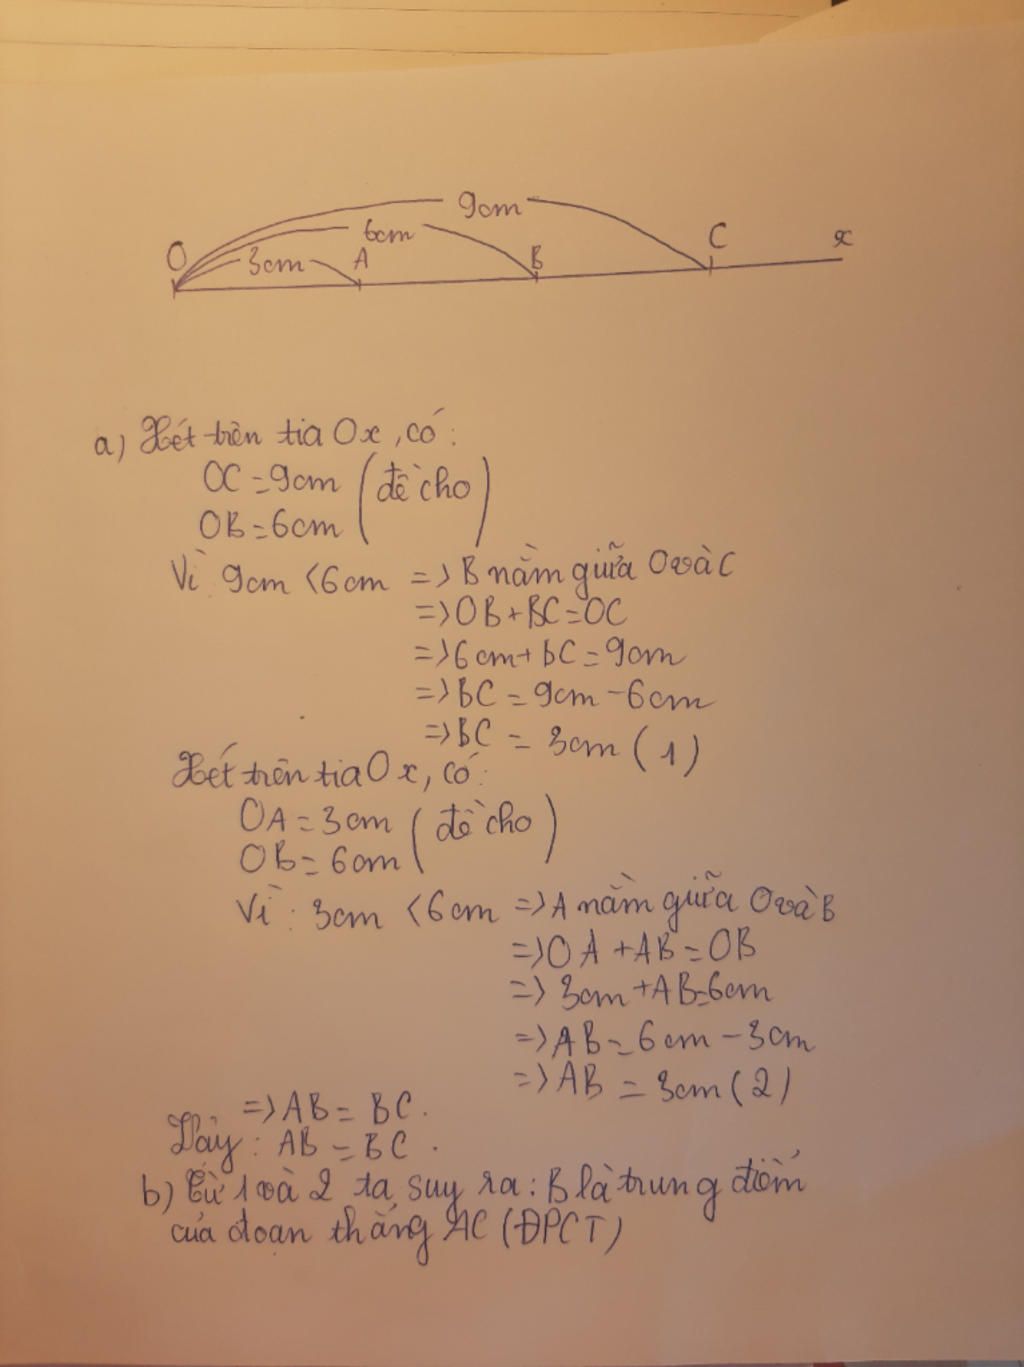 9cm
6cm
O 3cm A B C x
a) Xét trên tia Ox, có:
OC = 9cm (đề cho)
OB = 6cm
Vì 9cm < 6cm => B nằm giữa O và C
=> OB + BC = OC
=> 6cm + BC = 9cm
=> BC = 9cm - 6cm
=> BC = 3cm (1)
Xét trên tia Ox, có:
OA = 3cm (đề cho)
OB = 6cm
Vì: 3cm < 6cm => A nằm giữa O và B
=> OA + AB = OB
=> 3cm + AB = 6cm
=> AB = 6cm - 3cm
=> AB = 3cm (2)
=> AB = BC.
Vậy: AB = BC.
b) Từ 1 và 2 ta suy ra: B là trung điểm
của đoạn thẳng AC (ĐPCT)